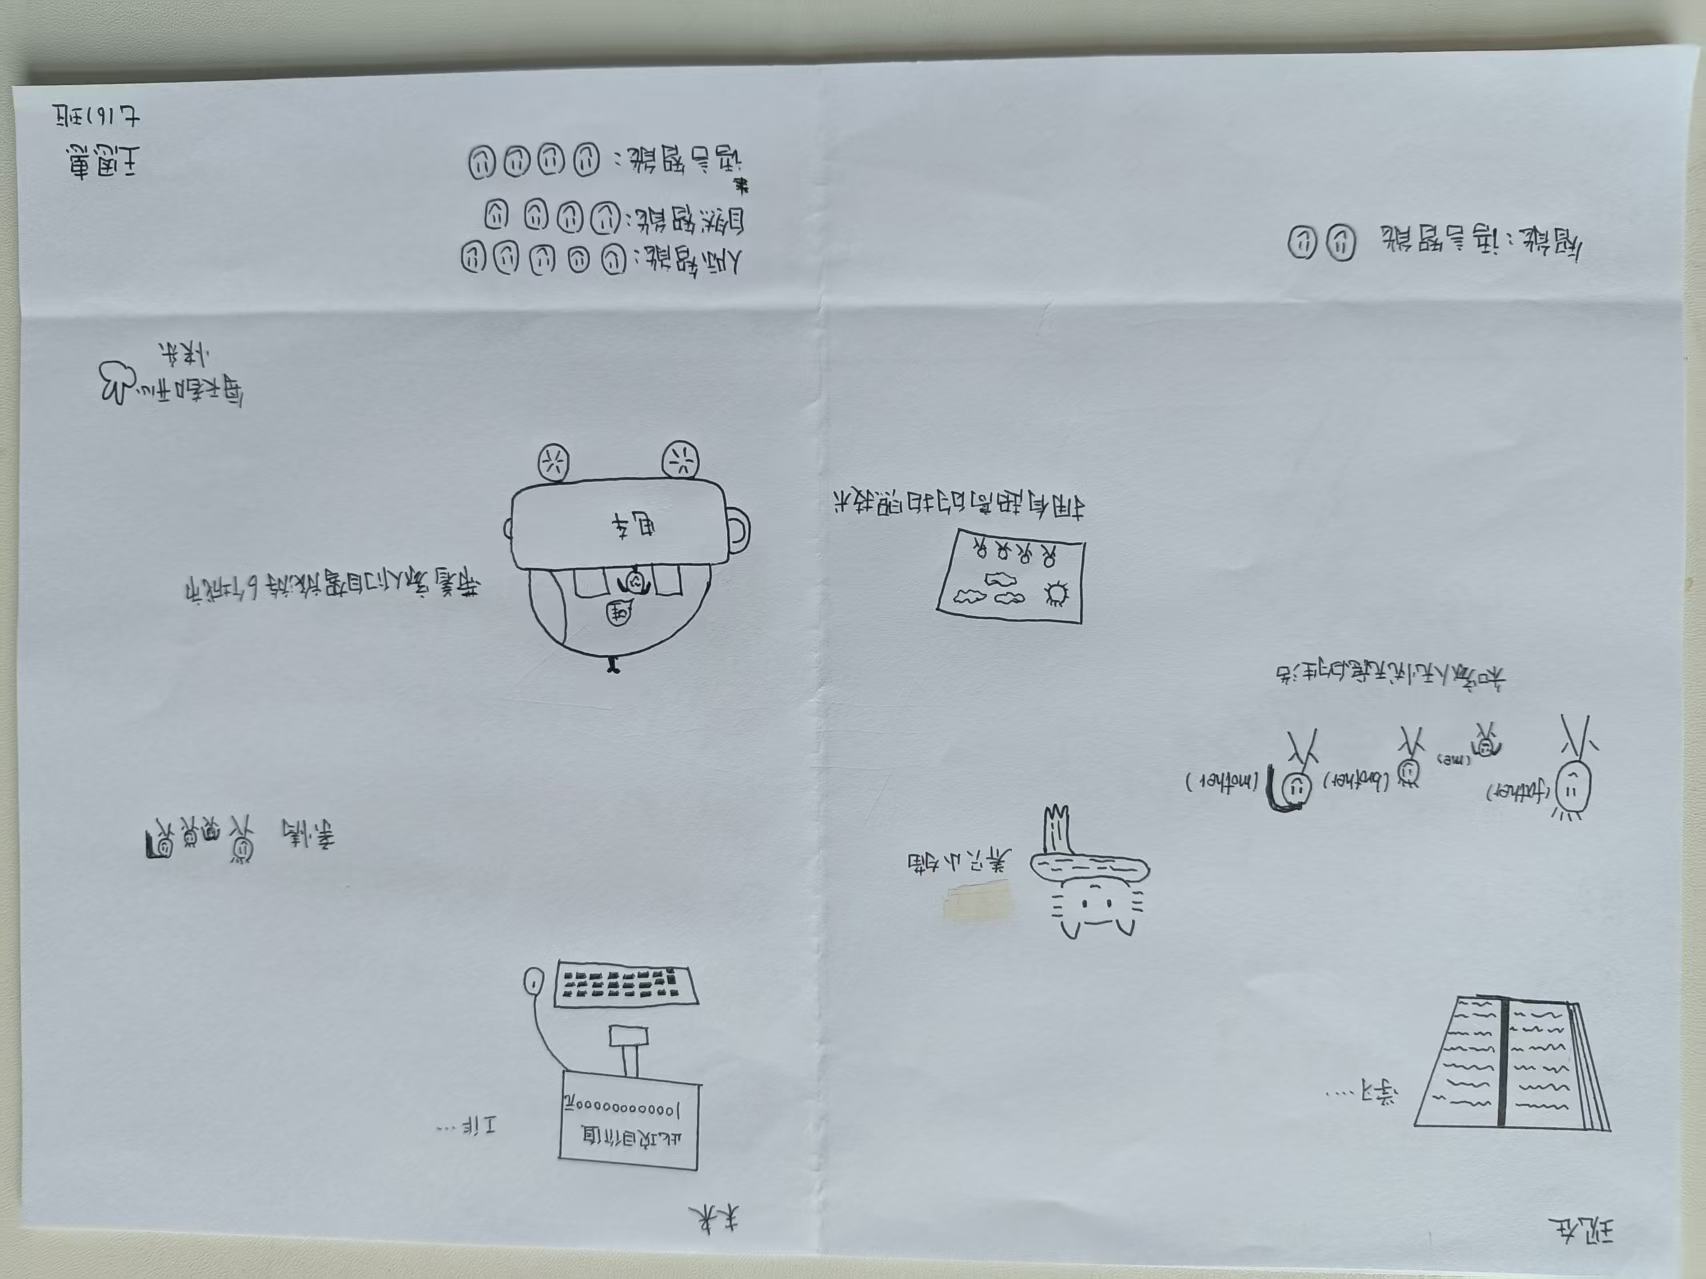 现在
学习……
(father)
(me)
(brother)
(mother)
和家人无忧无虑的生活
养只小猫
拥有超高的拍照技术
智能:语言智能
未来
此项目价值
100000000000元
工作…
亲情
哇
电车
带着家人们自驾旅游6个城市
每天都开心
快乐
人际智能:
自然智能:
语言智能:
王恩惠
七(6)班